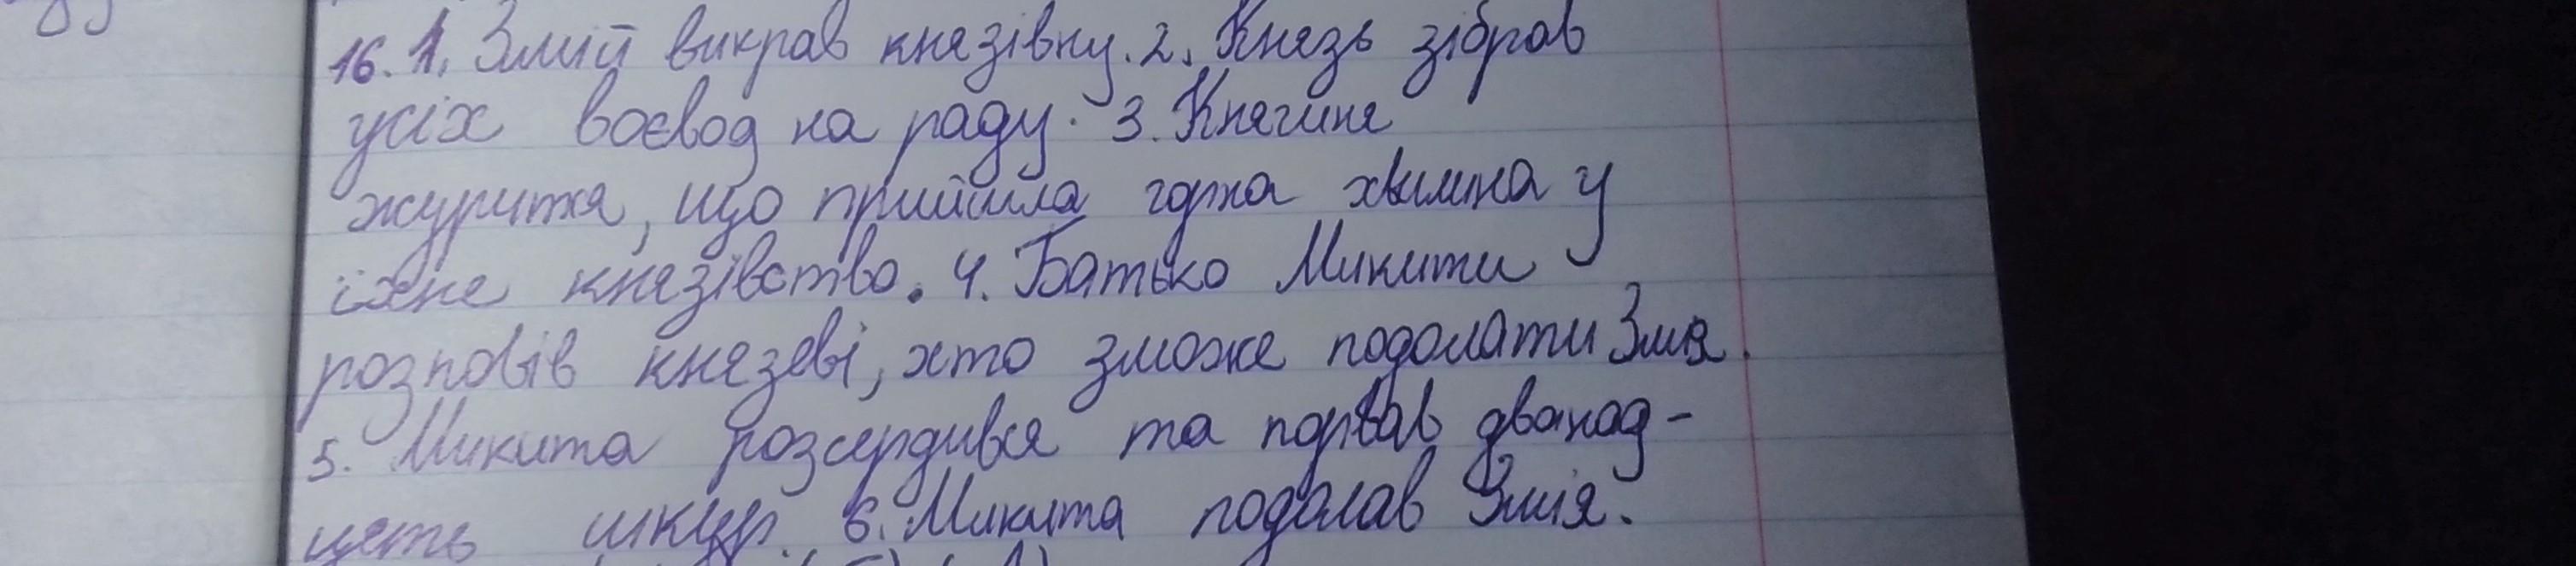 16. 1. Змій викрав князівну. 2. Князь зібрав
усіх воєвод на раду. 3. Княгиня
журиться, що прийшла горна хвилина у
їхнє князівство. 4. Батько Микити
розповів князеві, хто зможе подолати Змія.
5. Микита розсердився та порвав дванад-
цять шкур. 6. Микита подолав Змія.